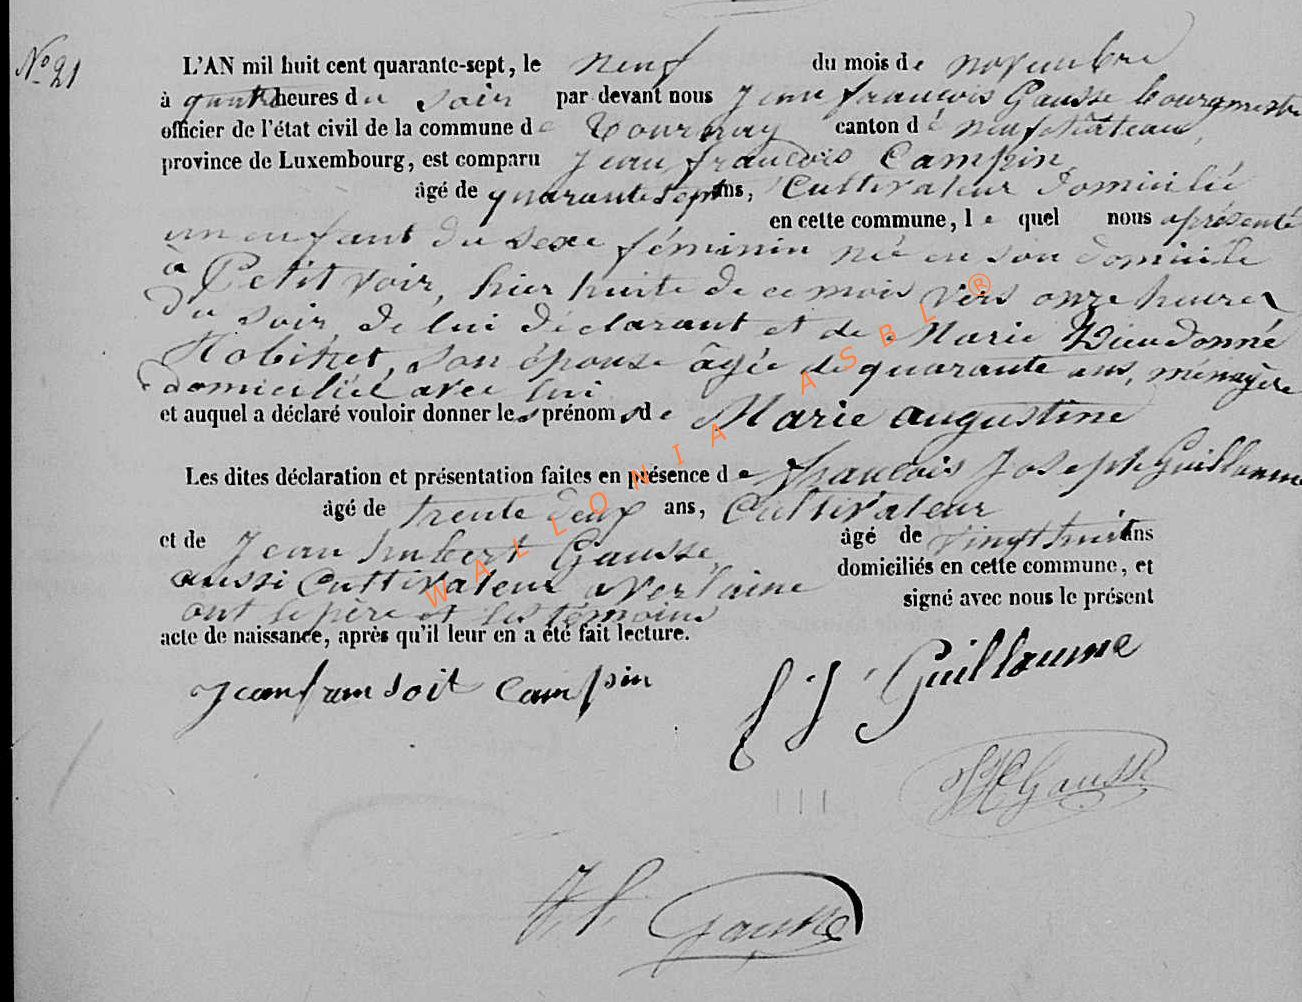 N° 21
L'AN mil huit cent quarante-sept, le neuf du mois de novembre
à quatre heures du soir par devant nous Jean françois Gausse bourgmestre
officier de l'état civil de la commune de Tournay canton de neufchâteau,
province de Luxembourg, est comparu Jean françois Campin
âgé de quarante sept ans, Cultivateur domicilié
en cette commune, le quel nous a présenté
un enfant du sexe féminin né en son domicile
à Petitvoir, hier huite de ce mois vers onze heures
du soir, de lui déclarant et de Marie Dieudonné
Nobibet, son épouse âgée de quarante ans, ménagère
domiciliée avec lui
et auquel a déclaré vouloir donner les prénoms de Marie augustine
Les dites déclaration et présentation faites en présence de françois Joseph Guillaume
âgé de trente deux ans, Cultivateur
et de Jean hubert Gausse, âgé de vingt huit ans
aussi Cultivateur a Verlaine domiciliés en cette commune, et
ont le père et les témoins signé avec nous le présent
acte de naissance, après qu'il leur en a été fait lecture.
Jean fransoit Campin
f J Guillaume
JH Gausse
J. f. Gausse
WALLONIA ASBL ®